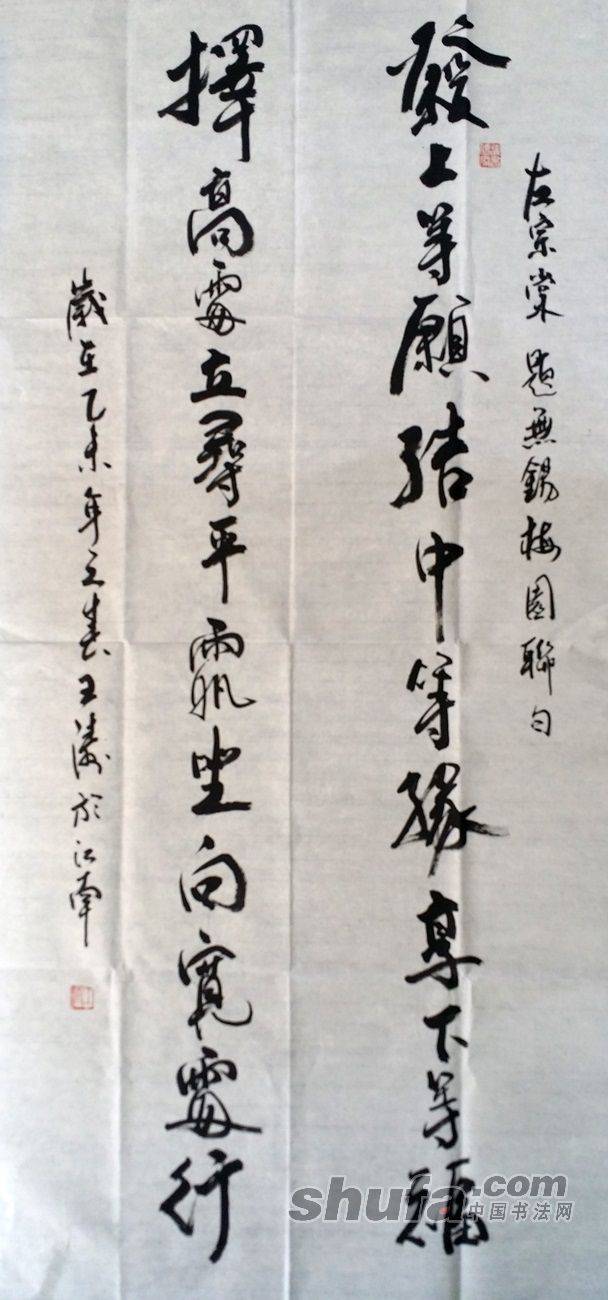 左宗棠題無錫梅園聯句
發上等願結中等緣享下等福
擇高處立尋平處坐向寬處行
歲在乙未年之春王於江南
shufa.com
中国书法网